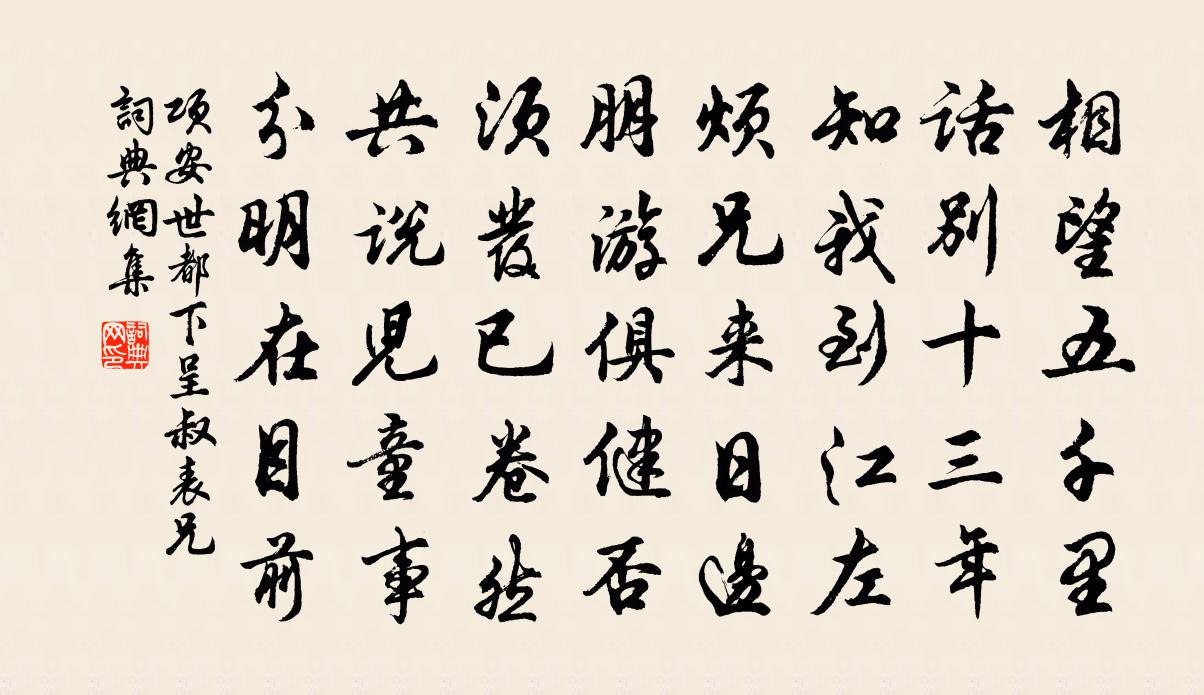 相望五千里
話別十三年
知我到江左
煩兄来日邊
朋游俱健否
須發已卷然
共説兒童事
分明在目前
項安世都下呈叔表兄
詞典網集
詞典网印